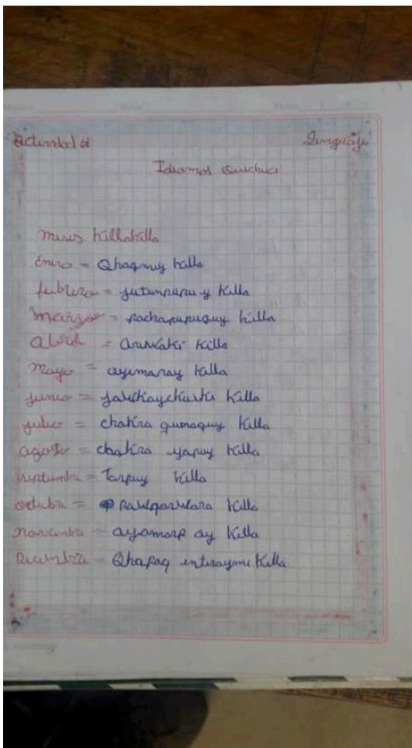 Actividad # Lenguaje
Idiomas Quechua
meses killakilla
Enero = Qhaqmiy killa
febrero = jatunpupuy killa
marzo = pachapupuquy killa
abril = ariwaki killa
mayo = aymaray killa
junio = killa
julio = chakra qunaquy killa
agosto = chakra yapuy killa
septiembre = Tarpuy killa
octubre = killa
noviembre = ayamarq ay killa
Diciembre = Qhapaq intiraymi killa